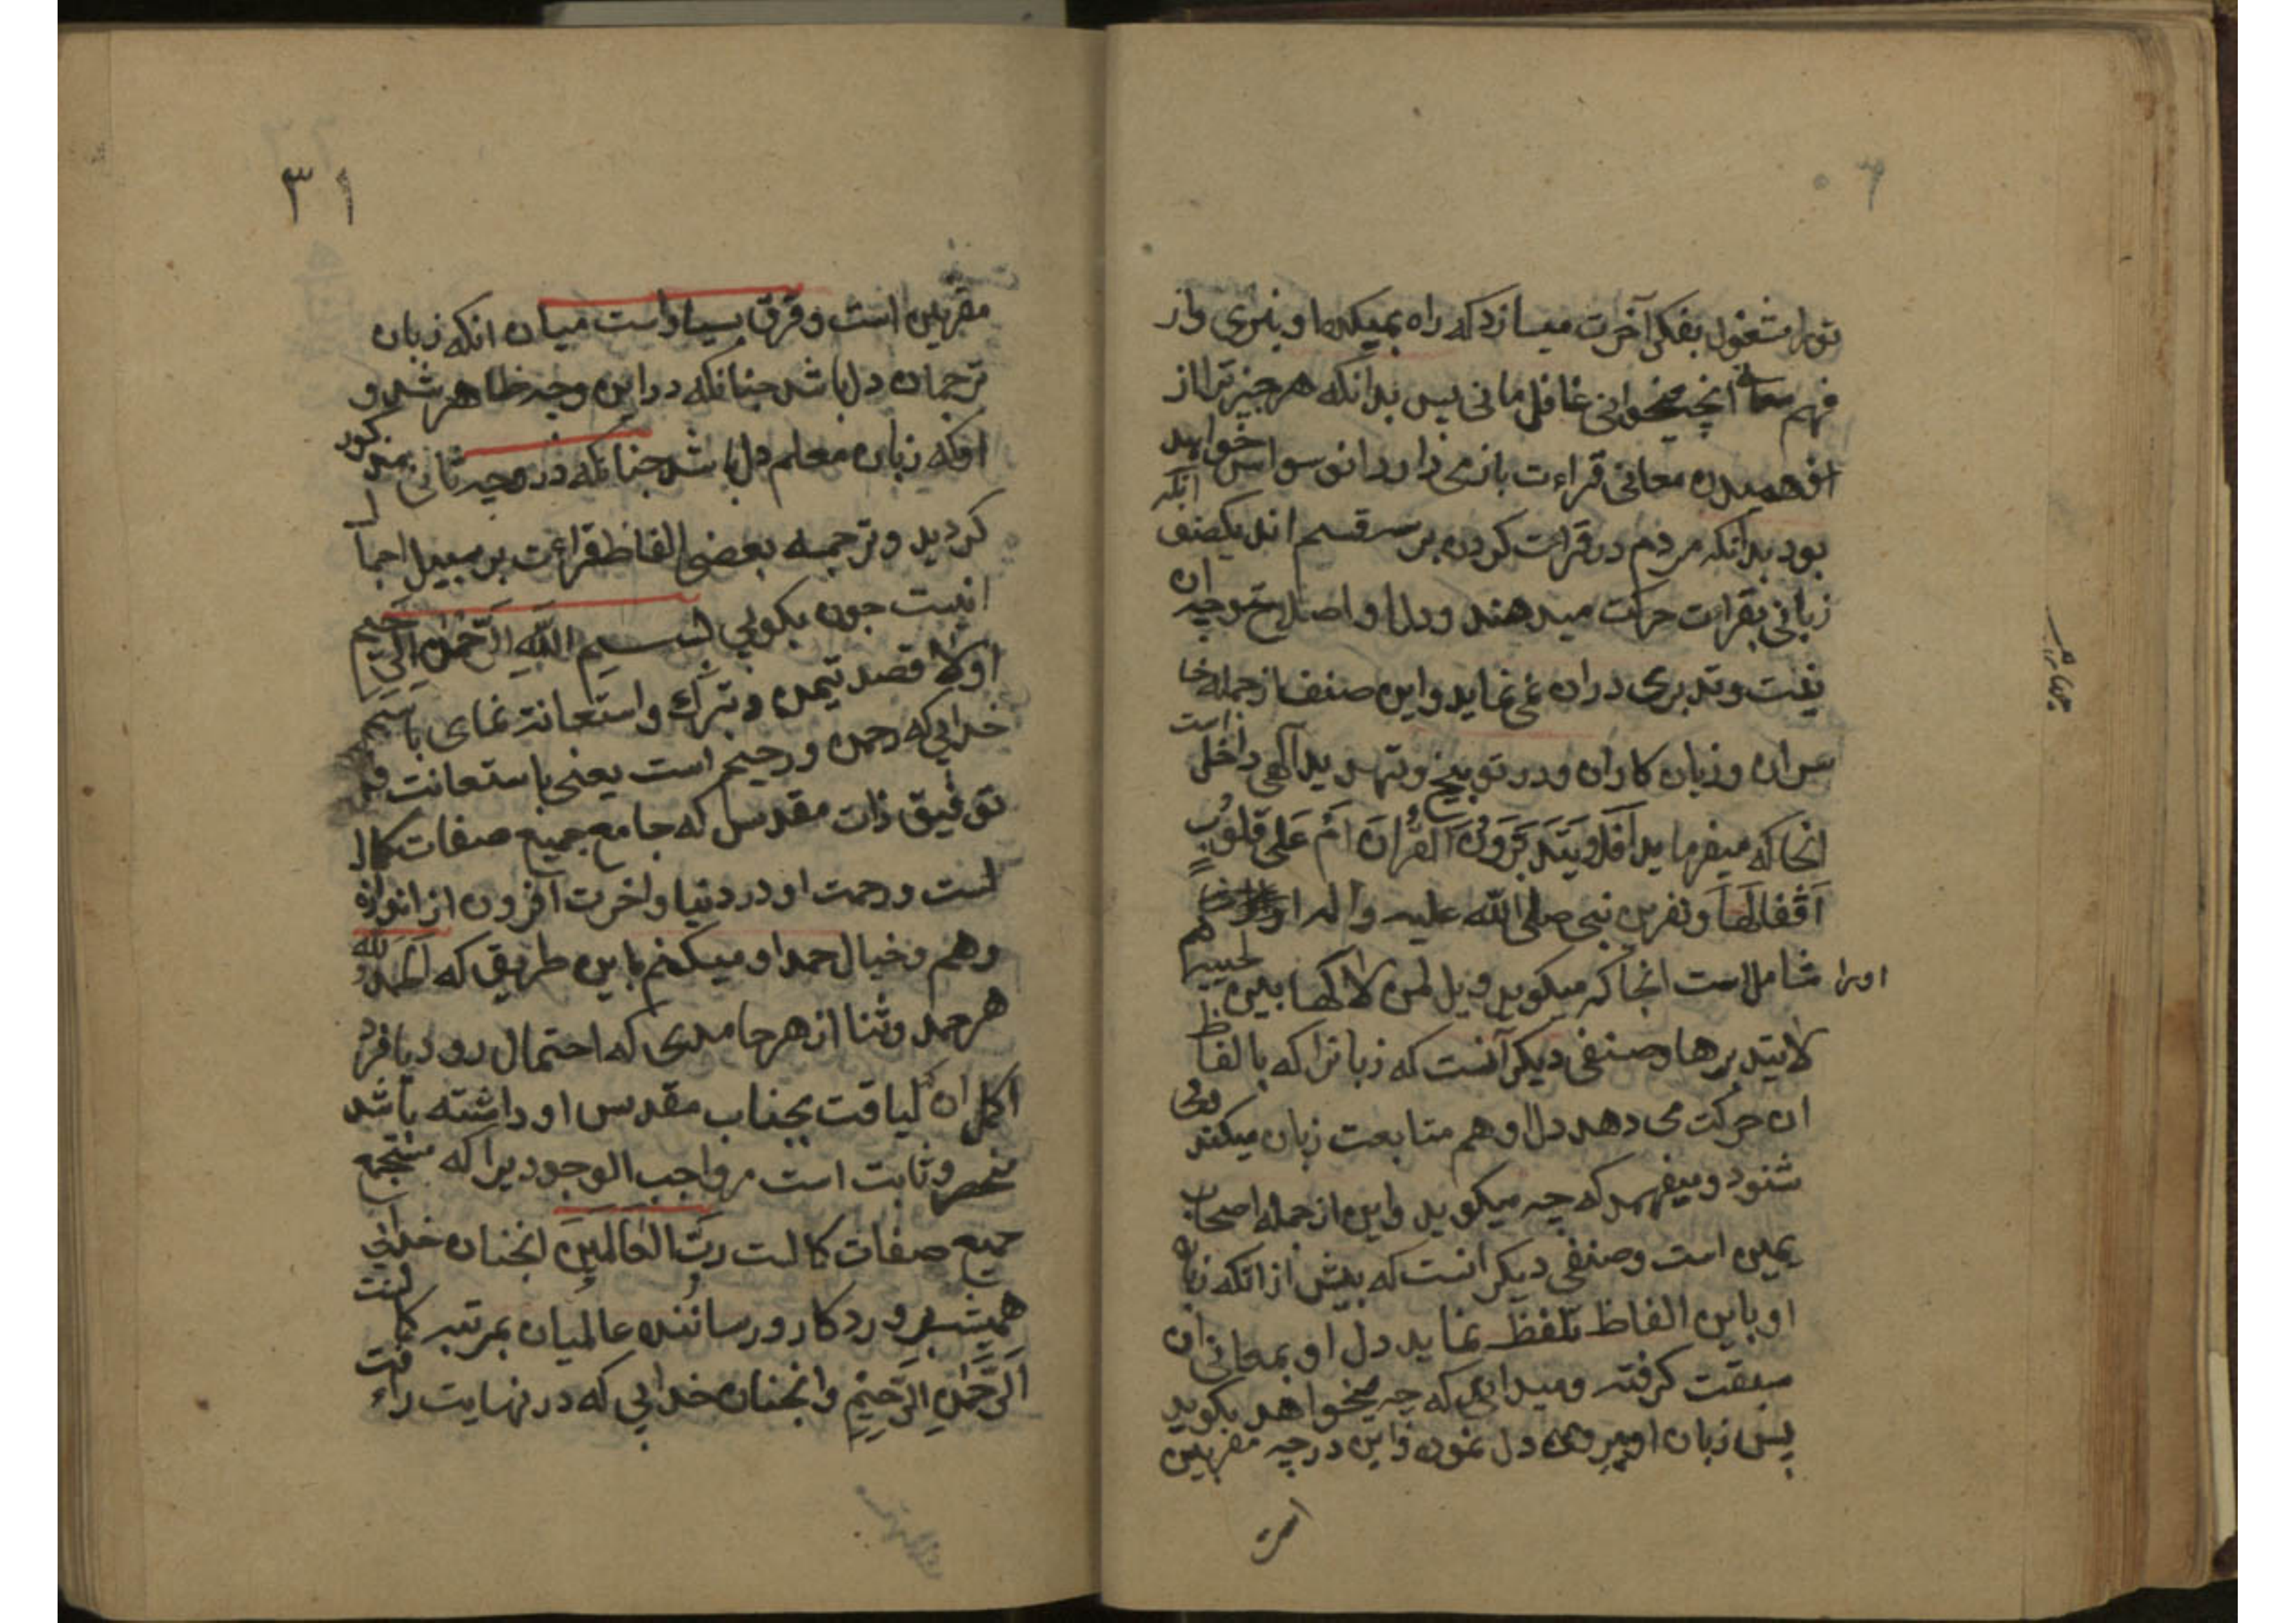 تورا مشغول بفکر آخرت میسازد که راه بمیکدها و بنری واز
فهم معانی انچه میخوانی غافل مانی پس بدانکه هر چیز ترا از
افهمیدن معانی قراءت بازمی دارد انوسواس خواهد
بود بدانکه مردم در قراءت کردن بر سه قسم اند یکصنف انکه
زبانی بقراءت حرکت میدهند ودل او اصلا متوجه ان
نیست وتدبری در ان نمی نماید واین صنف از جمله خا
سران وزیان کاران ودر توبیخ وتهدید آلهی داخل است
انجا که میفرماید اَفَلا یَتَدَبَّرُونَ القُرآنَ اَمْ عَلی قُلُوبٍ
اَقْفالُهَا ونفرین نبی صلی الله علیه واله
اورا شاملست انجا که میکوید ویل لمن لاکها بین لحییه
لایتدبرها وصنفی دیکر آنست که زبانرا که بالفاظ
ان حرکت می دهد دل او هم متابعت زبان میکند ومی
شنود ومیفهمد که چه میکوید واین از جمله اصحاب
یمین است وصنفی دیکر انست که پیش از انکه زبان
او باین الفاظ تلفظ نماید دل او بمعانی ان
سبقت کرفته ومیداند که چه میخواهد بکوید
پس زبان او پیروی دل نموده واین درجه مقربین
است
۳۱
مقربین است وفرق بسیار است میان انکه زبان
ترجمان دل باشد چنانکه در این وجه ظاهر شد و
انکه زبان معلم دل باشد چنانکه در وجه ثانی مذکور
کردید وترجمه بعضی الفاظ قراءت بر سبیل اجمال
اینست چون بکویی بسم الله الرَّحمٰنِ الرَّحیم
اولا قصد تیمن وتبرک واستعانت نمای باسم
خدایی که رحمن ورحیم است یعنی باستعانت و
توفیق ذات مقدس که جامع جمیع صفات کمال
است ورحمت او در دنیا واخرت افزون از اندازه
وهم وخیال حمد او میکنم باین طریق که اَلحَمدُ لله
هر حمد وثنا از هر حامدی که احتمال رود یا فرد
اکمل ان لیاقت بجناب مقدس او داشته باشد
منحصر وثابت است مر واجب الوجودیرا که مستجمع
جمیع صفات کمالست رَبِّ العَالَمینَ انچنان خدایی
همیشه پروردکار ورساننده عالمیان بمرتبه کمالست
الرَّحمٰنِ الرَّحیمِ وانچنان خدایی که در نهایت رافت